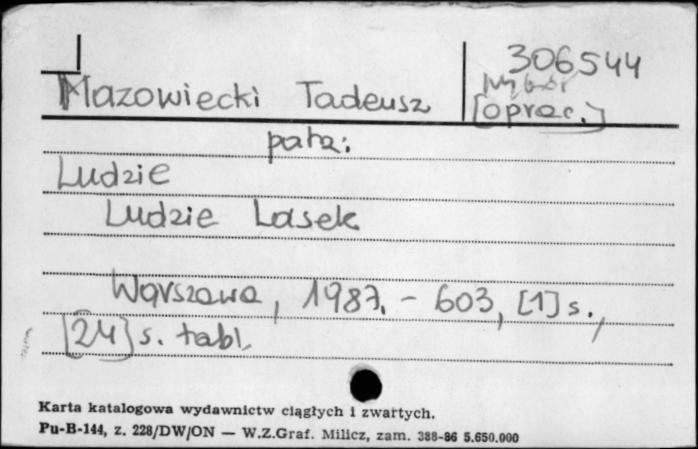 306544
Mazowiecki Tadeusz
wybór
[oprac.]
patrz:
Ludzie
Ludzie Lasek
Warszawa, 1987. - 603, [1] s.,
[24] s. tabl.
Karta katalogowa wydawnictw ciągłych i zwartych.
Pu-B-144, z. 228/DW/ON — W.Z.Graf. Milicz, zam. 388-86 5.650.000